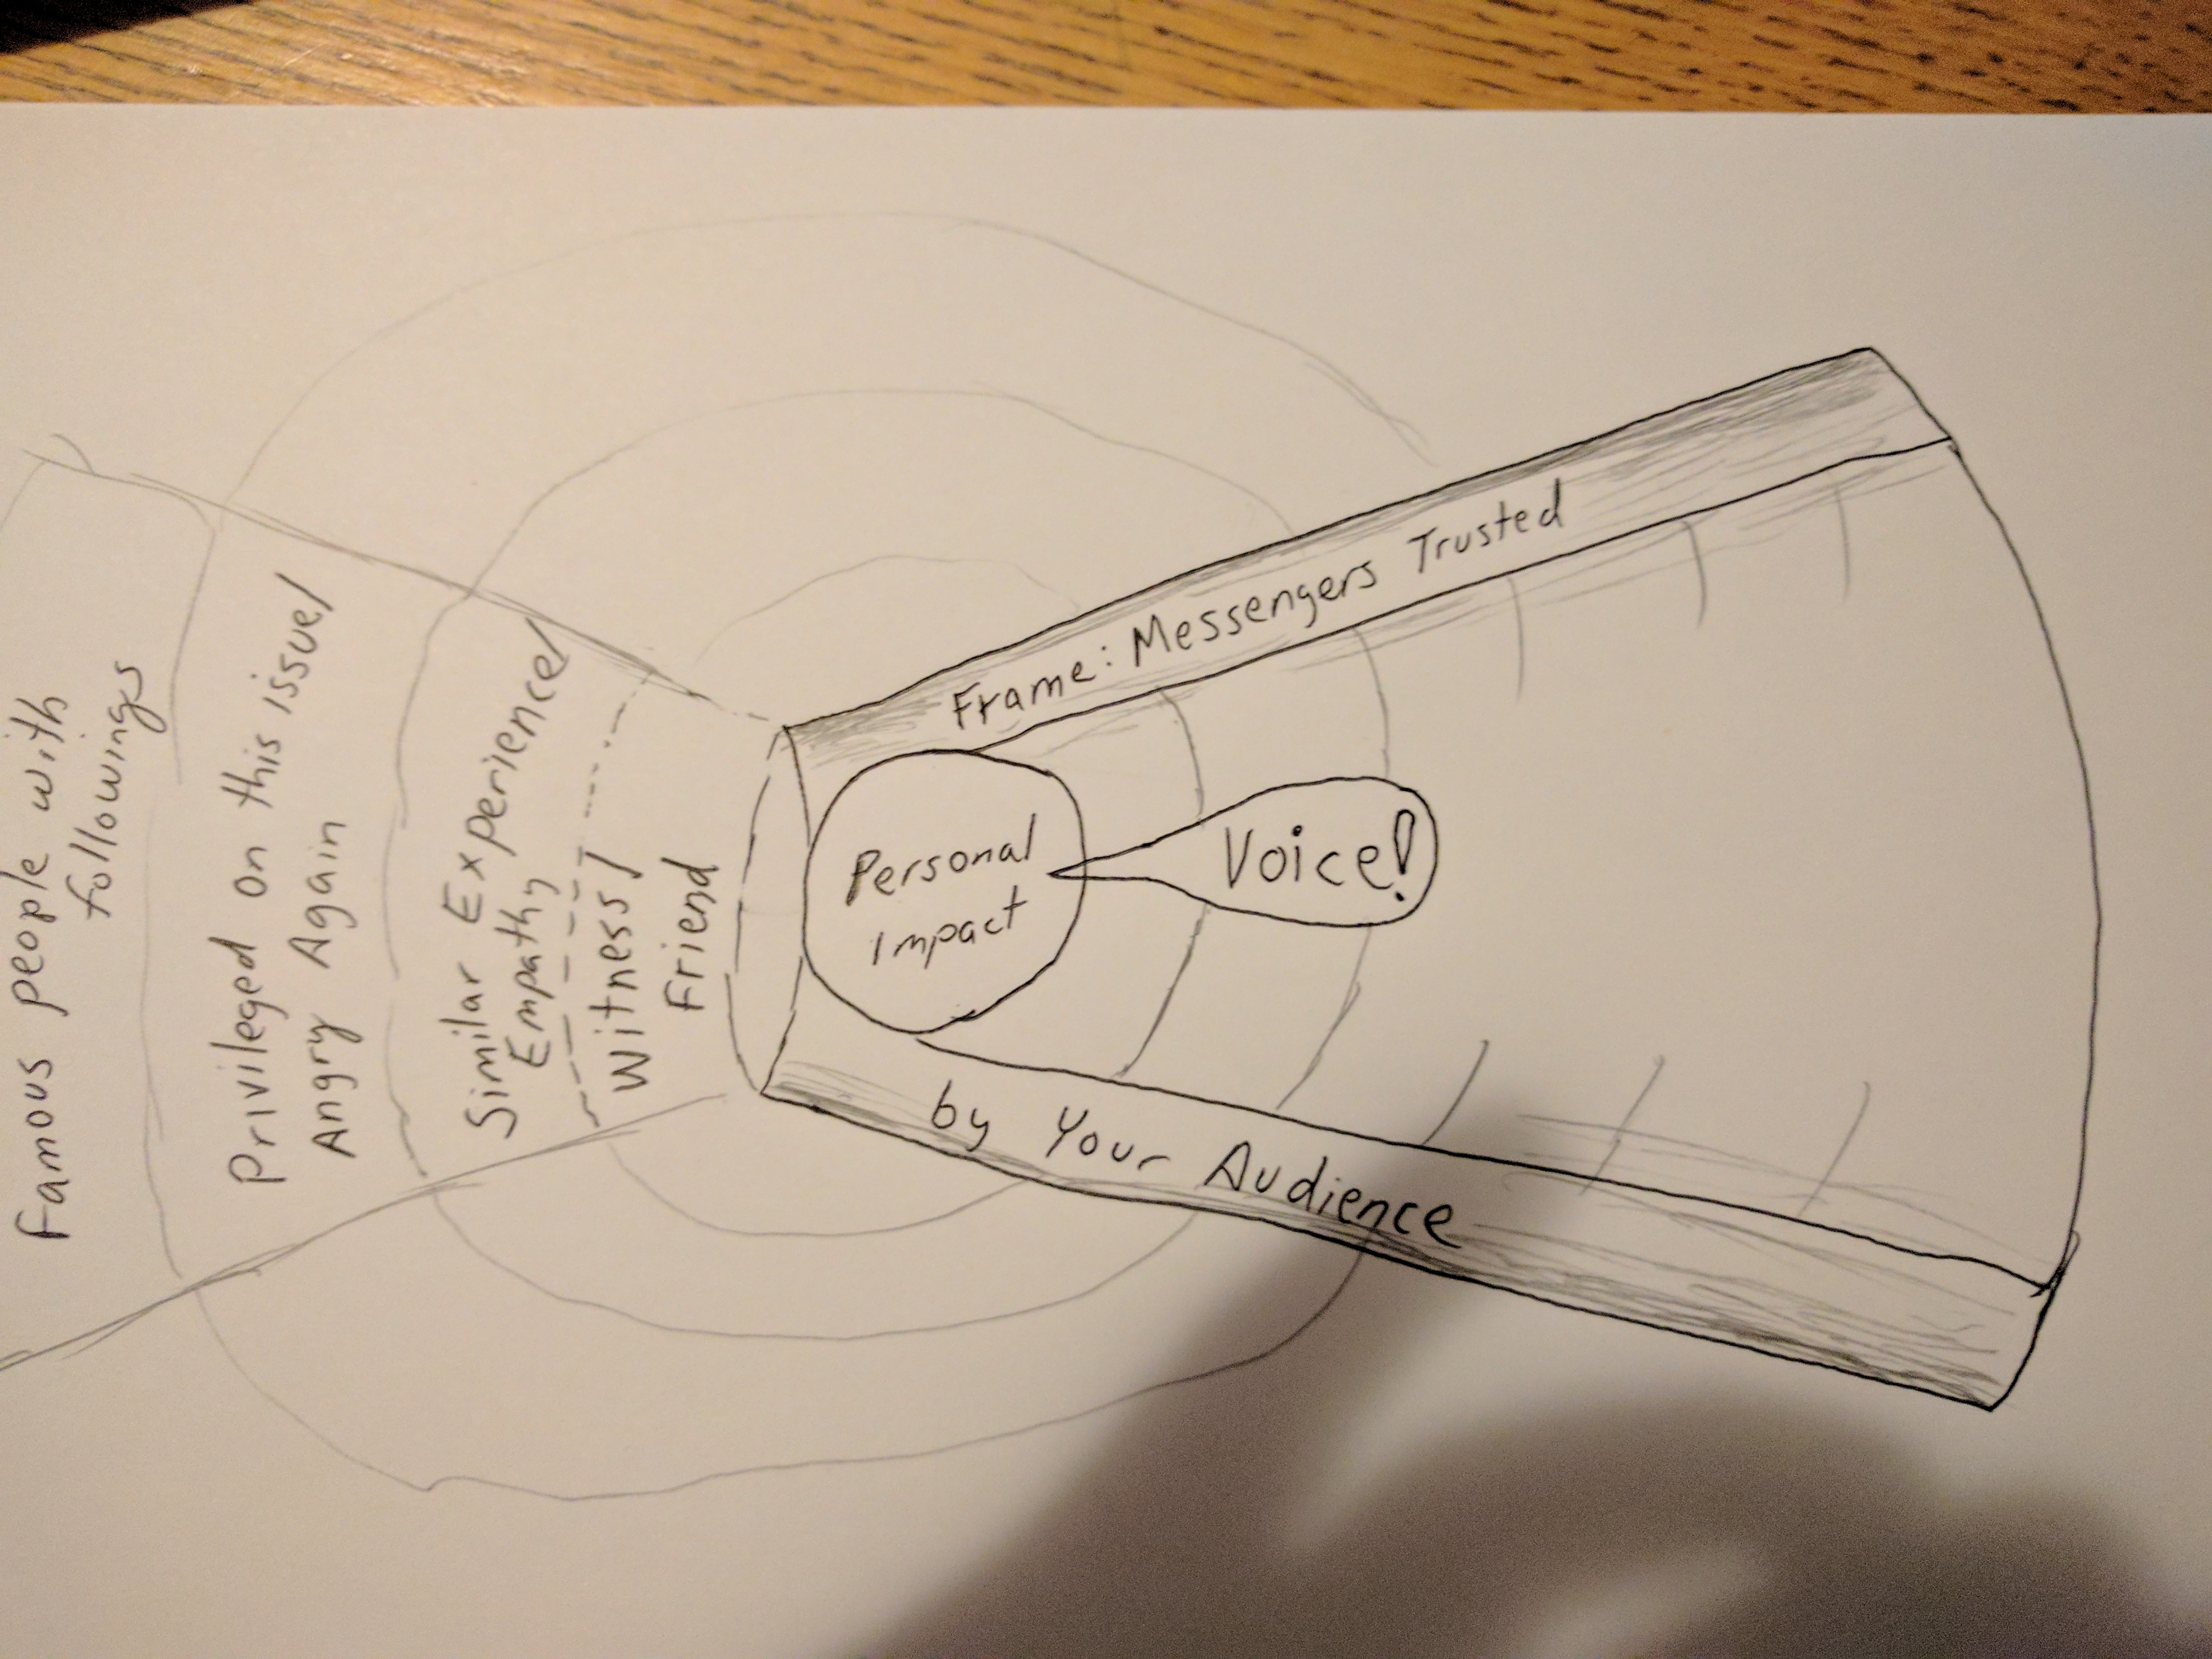 Famous people with
followings
Privileged on this issue/
Angry Again
Similar Experience/
Empathy
Witness/
Friend
Personal
Impact
Voice!
Frame: Messengers Trusted
by Your Audience